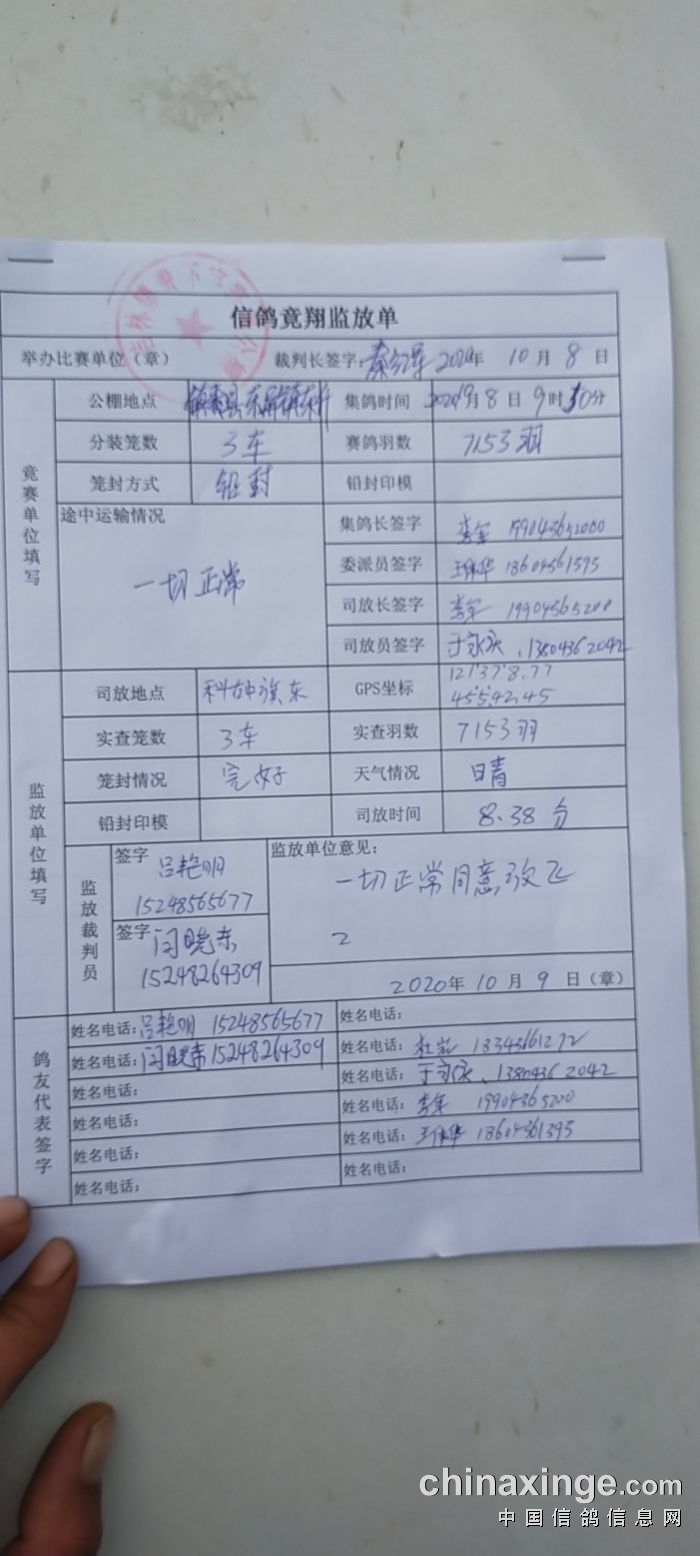 信鸽竞翔监放单
举办比赛单位（章） 裁判长签字： 2020年 10月 8日
竞赛单位填写
公棚地点 集鸽时间 8日 9时
分装笼数 3车 赛鸽羽数 7153羽
笼封方式 铅封 铅封印模
途中运输情况 一切正常
集鸽长签字 李军
委派员签字 王伟华 18604361395
司放长签字 李军 19904365200
司放员签字 于永庆 13804362042
监放单位填写
司放地点 GPS坐标 121°37′8.77
45°5′42.45
实查笼数 3车 实查羽数 7153羽
笼封情况 完好 天气情况 晴
铅封印模 司放时间 8.38分
监放裁判员
签字 吕艳明
15248565677
签字 闫晓东
15248264309
监放单位意见：
一切正常同意放飞
2020年 10月 9日（章）
鸽友代表签字
姓名电话：吕艳明 15248565677 姓名电话：
姓名电话：闫晓东 15248264309 姓名电话： 13343661272
姓名电话： 姓名电话：于永庆 13804362042
姓名电话： 姓名电话：李军 19904365200
姓名电话： 姓名电话：王伟华 18604361395
姓名电话： 姓名电话：
chinaxinge.com
中国信鸽信息网